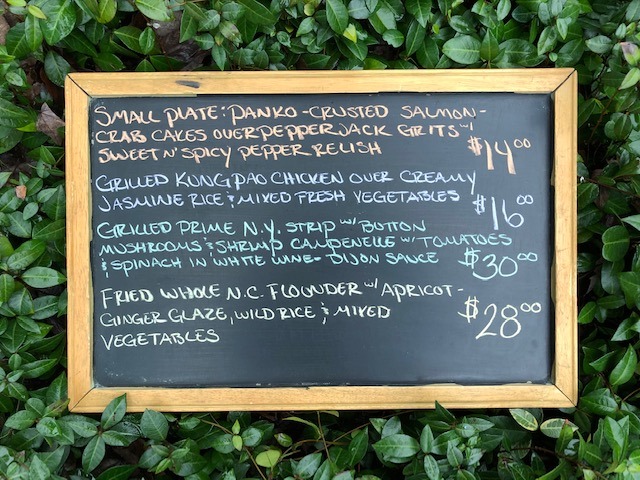 SMALL PLATE: PANKO-CRUSTED SALMON-
CRAB CAKES OVER PEPPERJACK GRITS w/
SWEET N' SPICY PEPPER RELISH $14.00
GRILLED KUNG PAO CHICKEN OVER CREAMY
JASMINE RICE & MIXED FRESH VEGETABLES $16.00
GRILLED PRIME N.Y. STRIP w/ BUTTON
MUSHROOMS & SHRIMP CAMPENELLE w/ TOMATOES
& SPINACH IN WHITE WINE-DIJON SAUCE $30.00
FRIED WHOLE N.C. FLOUNDER w/ APRICOT-
GINGER GLAZE, WILD RICE & MIXED $28.00
VEGETABLES